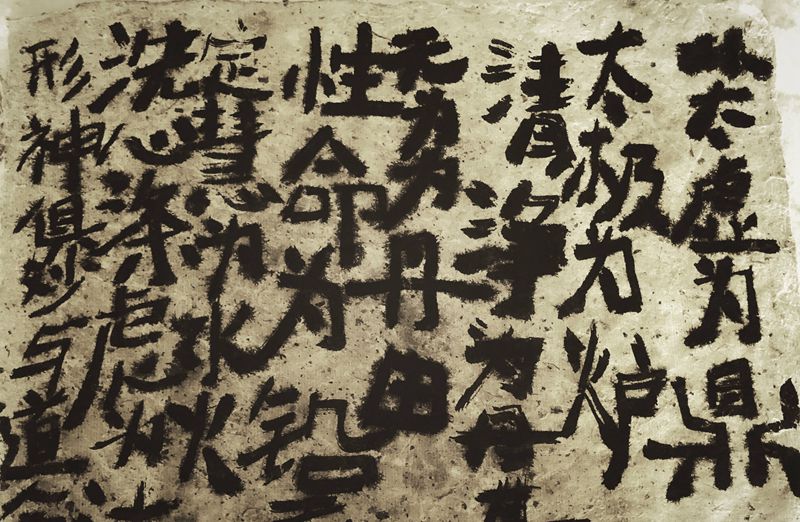 太虚为鼎
太极为炉
清净为丹
无 丹田
性命为铅
定慧为水火
洗心涤虑为
形神俱妙与道合